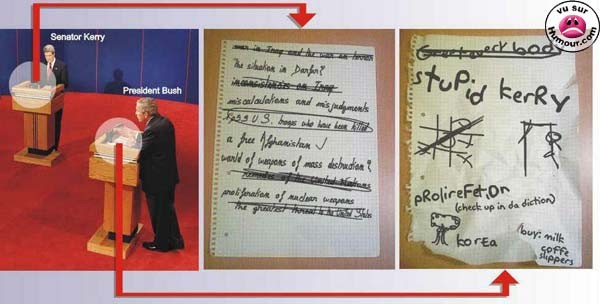 Senator Kerry
President Bush
war in Iraq and the war on terror
The situation in Darfur?
inconsistencies on Iraq
miscalculations and misjudgments
1052 U.S. troops who have been killed
a free Afghanistan ✓
world of weapons of mass distruction?
remedies of the United Nations
proliferation of nuclear weapons
The greatest threat to the United States
stupid kerry
pRolireFetiOn
(check up in da diction)
korea
buy: milk
coffe
slippers
vu sur
Humour.com